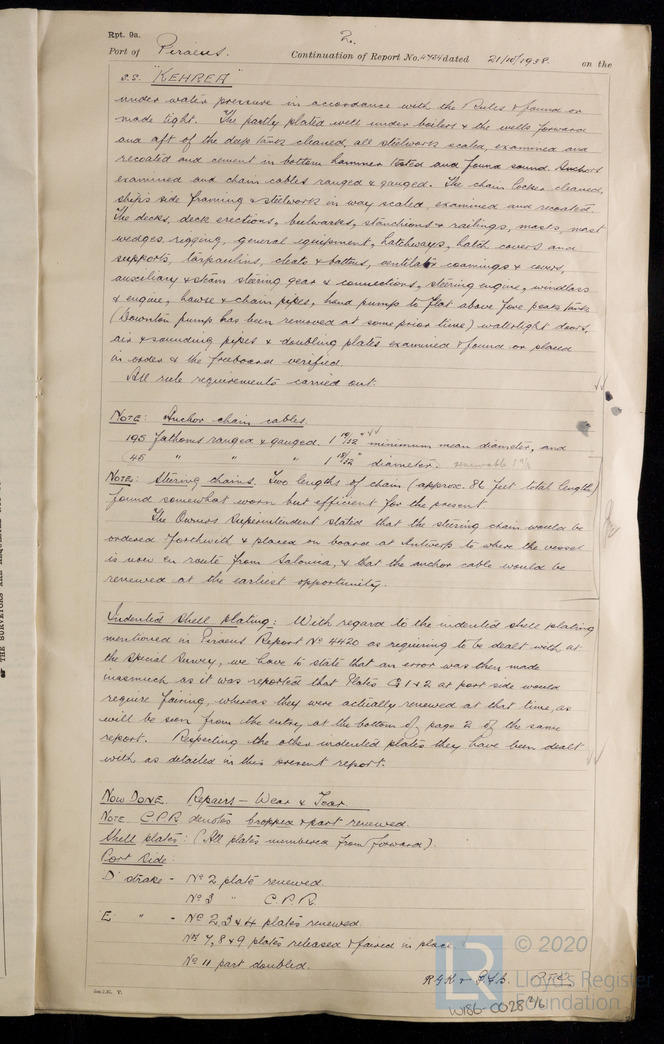 Rpt. 9a.
2.
Port of Piraeus. Continuation of Report No. 4784 dated 21/10/1938. on the
S.S. "KEHREA"
under water pressure in accordance with the Rules & found or
made tight. The partly plated well under boilers & the wells forward
and aft of the deep tank cleaned, all steelwork scaled, examined and
recoated and cement in bottom hammer tested and found sound. Anchors
examined and chain cables ranged & gauged. The chain locker cleaned,
ship's side framing & steelwork in way scaled, examined and recoated.
The decks, deck erections, bulwarks, stanchions & railings, masts, mast
wedges, rigging, general equipment, hatchways, hatch covers and
supports, tarpaulins, cleats & battens, ventilator coamings & covers,
auxiliary & steam steering gear & connections, steering engine, windlass
& engine, hawse & chain pipes, hand pump to flat above fore peak tank
(Downton pump has been removed at some prior time) watertight doors,
air & sounding pipes & doubling plates examined & found or placed
in order & the freeboard verified.
All rule requirements carried out.
NOTE: Anchor chain cables.
195 fathoms ranged & gauged. 1 19/32" minimum mean diameter, and
45 " " " 1 18/32" diameter. renewable
NOTE: Steering chains. Two lengths of chain (approx. 86 feet total length)
found somewhat worn but efficient for the present.
The Owners Superintendent stated that the steering chain would be
ordered forthwith & placed on board at Antwerp to where the vessel
is now en route from Salonica, & that the anchor cable would be
renewed at the earliest opportunity.
Indented Shell plating: With regard to the indented shell plating
mentioned in Piraeus Report No 4420 as requiring to be dealt with at
the Special Survey, we have to state that an error was then made
inasmuch as it was reported that Plates G 1 & 2 at port side would
require fairing, whereas they were actually renewed at that time, as
will be seen from the entry at the bottom of page 2 of the same
report. Respecting the other indented plates they have been dealt
with as detailed in this present report.
NOW DONE. Repairs – Wear & Tear
NOTE. C.P.R. denotes cropped & part renewed.
Shell plates: (All plates numbered from forward).
Port Side:
D strake - No 2 plate renewed.
No 3 " C.P.R.
E " - No 2, 3 & 4 plates renewed.
No 7, 8 & 9 plates released & faired in place
No 11 part doubled.
© 2020
Lloyd's Register
Foundation
LR
W186-0028 2/6
THE SURVEYORS ARE REQUESTED NOT TO